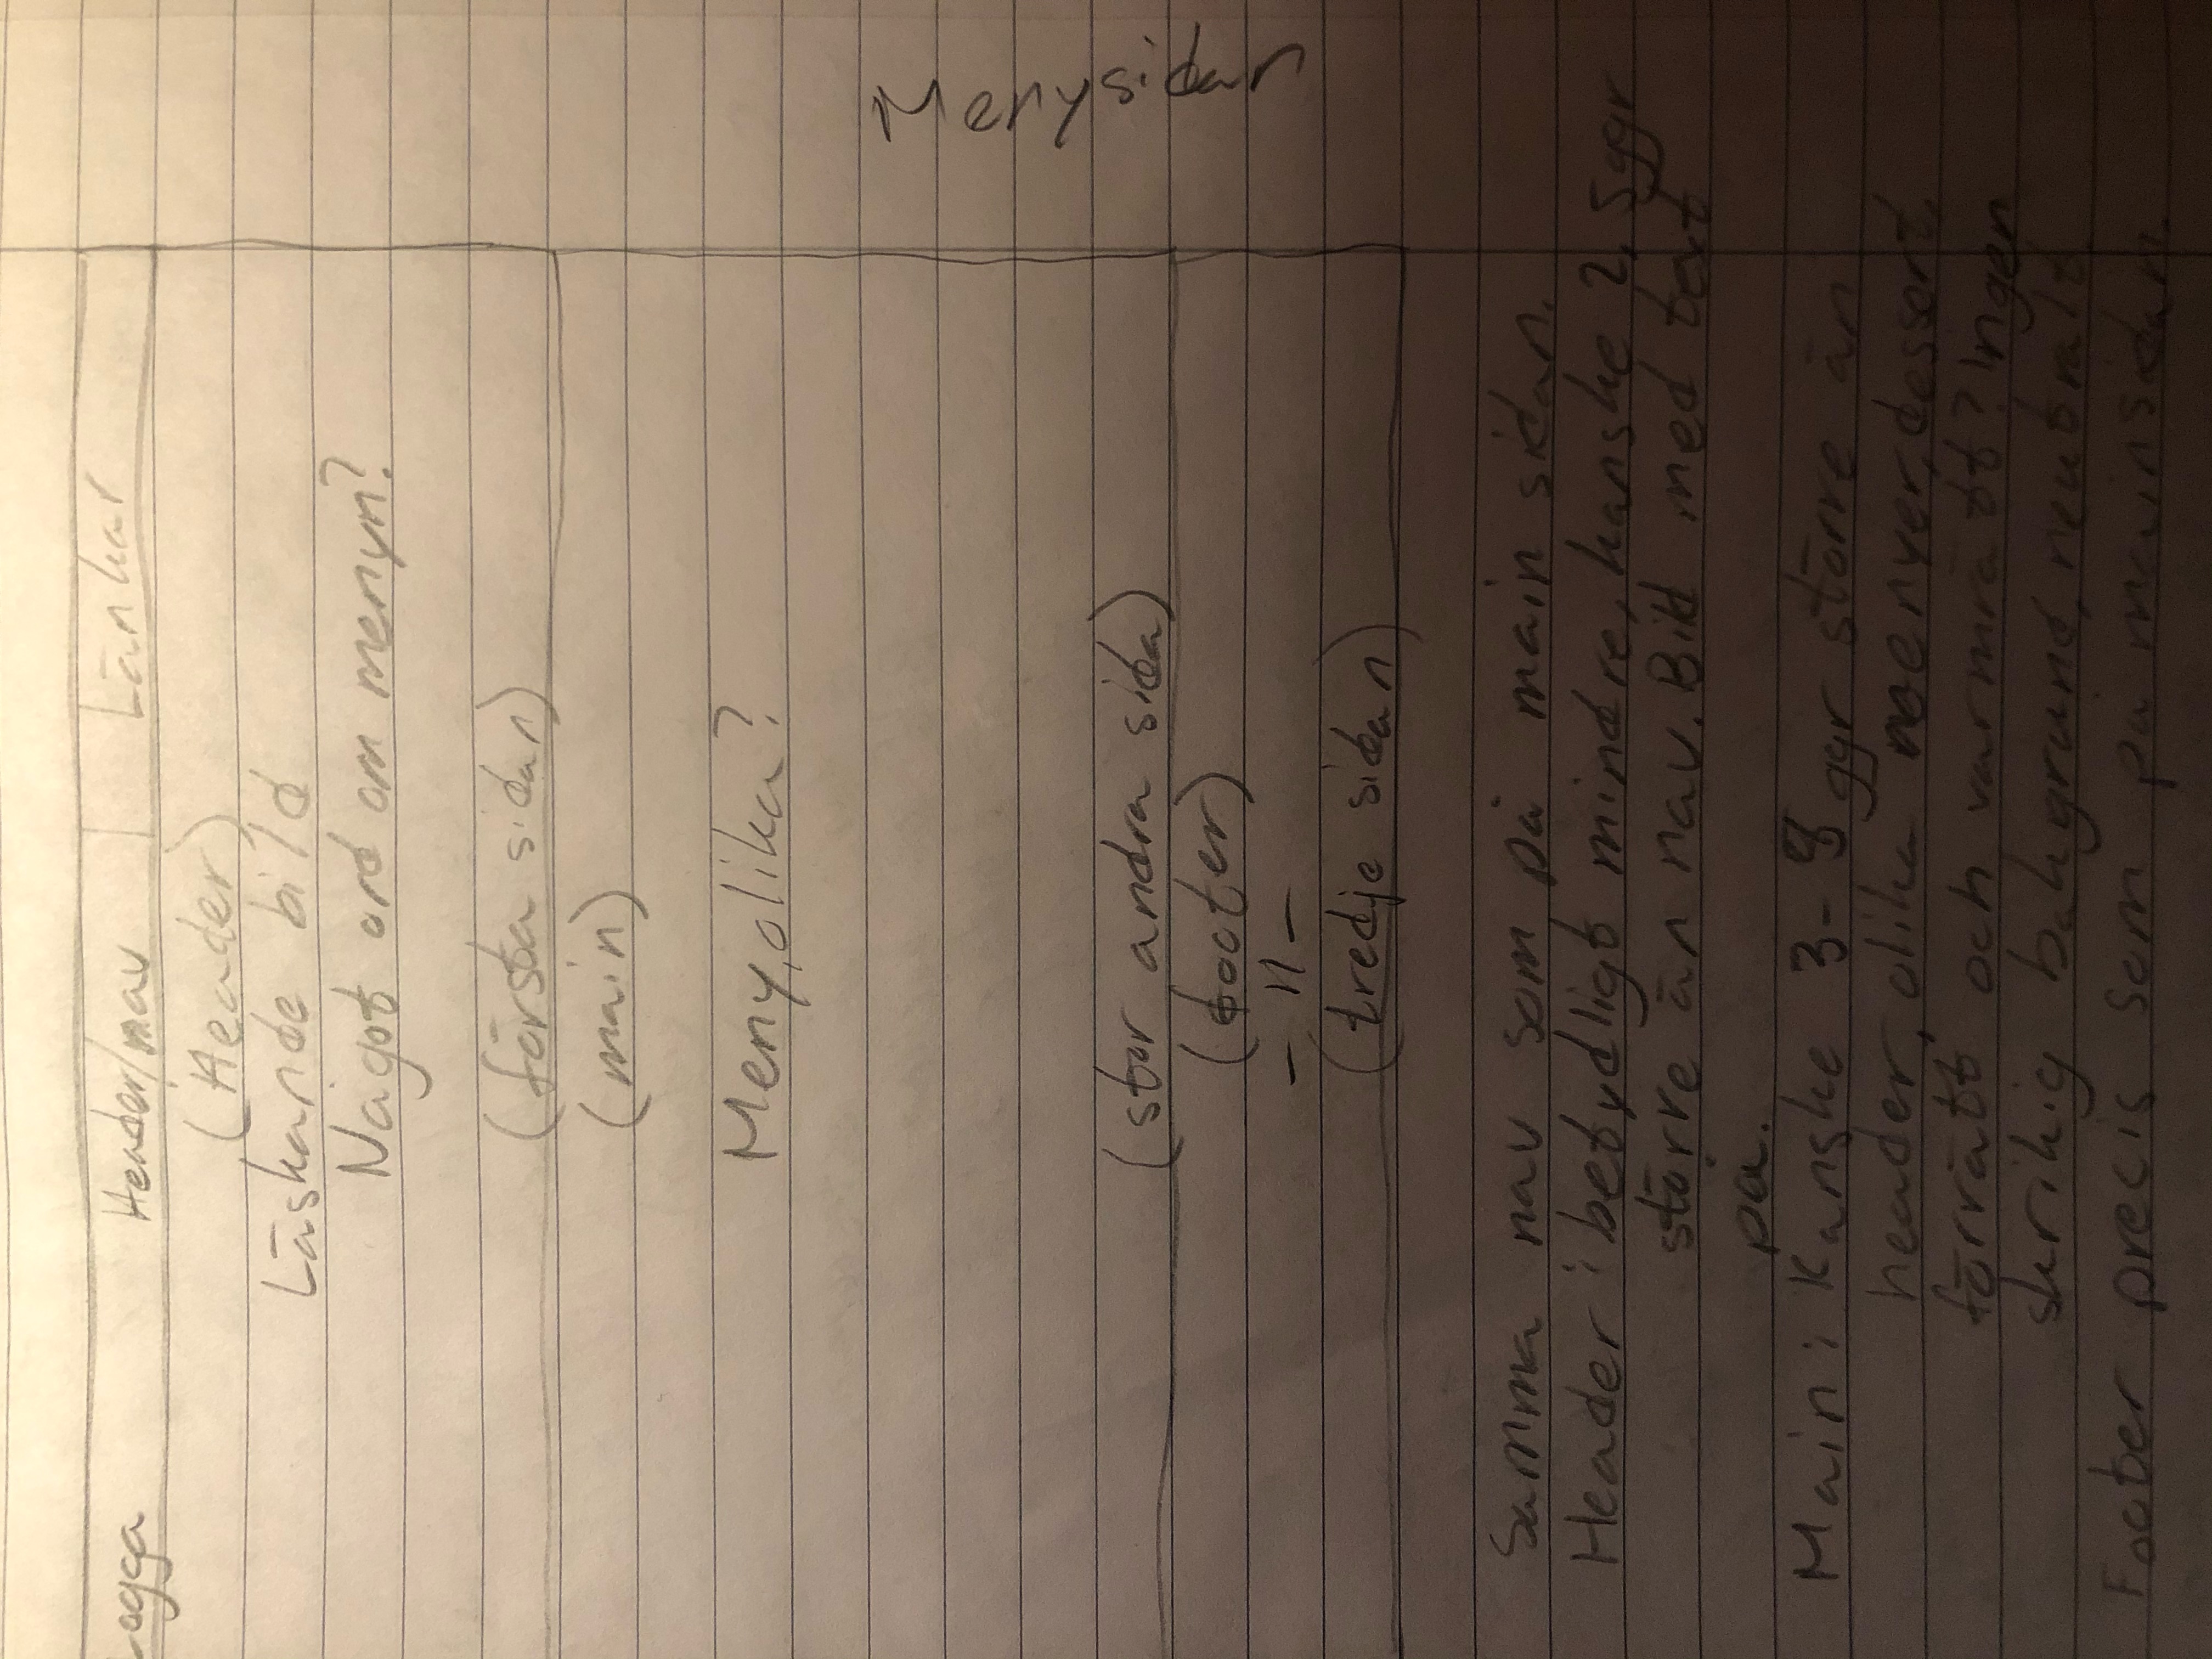 Logga Header/nav Länkar
(Header)
Läskande bild
Något ord om menyn?
(första sidan)
(main)
Meny, olika?
Menysidan
(stor andra sida)
(footer)
- 11 -
(tredje sidan)
Samma nav som på main sidan.
Header: betydligt mindre, kanske 2,5ggr
större än nav. Bild med text
på.
Main: Kanske 3-8 ggr större än
header, olika menyer, dessert,
förrätt och varmrätt? Ingen
skrikig bakgrund, neutralt
Footer precis som på mainsidan.